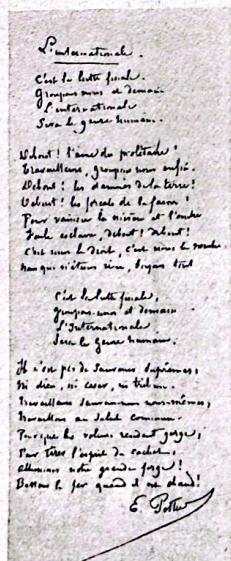 L'internationale.
C'est la lutte finale.
Groupons-nous et demain
L'internationale
Sera le genre humain.
Debout ! l'âme du prolétaire !
Travailleurs, groupons nous enfin.
Debout ! les damnés de la terre !
Debout ! les forçats de la faim !
Pour vaincre la misère et l'ombre
Foule esclave, debout ! debout !
C'est nous le droit, c'est nous le nombre
Nous qui n'étions rien, soyons tout
C'est la lutte finale,
Groupons-nous et demain
L'Internationale
Sera le genre humain.
Il n'est pas de Sauveurs Suprêmes,
Ni dieu, ni césar, ni tribun.
Travailleurs sauvons-nous nous-mêmes,
Travaillons au Salut commun.
Pour que les voleurs rendent gorge,
Pour tirer l'esprit du cachot,
Allumons notre grande forge !
Battons le fer quand il est chaud !
E. Pottier